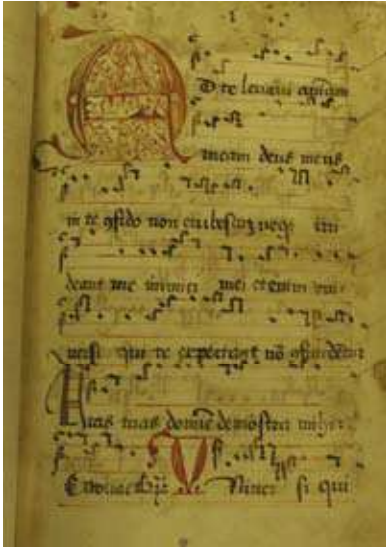 AD te levavi animam
meam deus meus
in te cfido non erubescaz neqz irri
deant me inimici mei etenim uni
versi qui te expectant nō cfundētur
Vias tuas domine demōstra mihi
Euouae Univer si qui